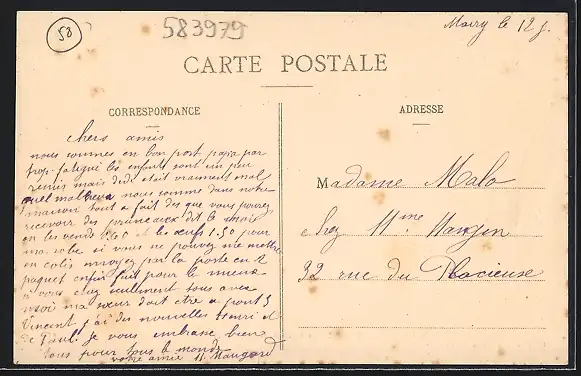 58
583979
Moiry le 12 j.
CARTE POSTALE
CORRESPONDANCE
ADRESSE
chers amis
nous sommes en bon port papa pas
trop fatigué les enfants sont un peu
remis mais dédé était vraiment mal
quel malheur nous somme dans notre
maison tout a fait des que vous pouvez
recevoir des pruneaux dit le mois
on les vends et les œufs 1.50 pour
ma robe si vous ne pouvez me mettre
en colis envoyez par la poste en 2
paquet enfin fait pour le mieux
si vous chez seullement tous avec
moi ma sœur doit etre a pont S
Vincent j'ai des nouvelles henri et
de Paul. je vous embrasse bien
tous pour tous le monde
votre amie H. Maugard
Madame Malo
chez Mme Mangin
32 rue du Placieuse